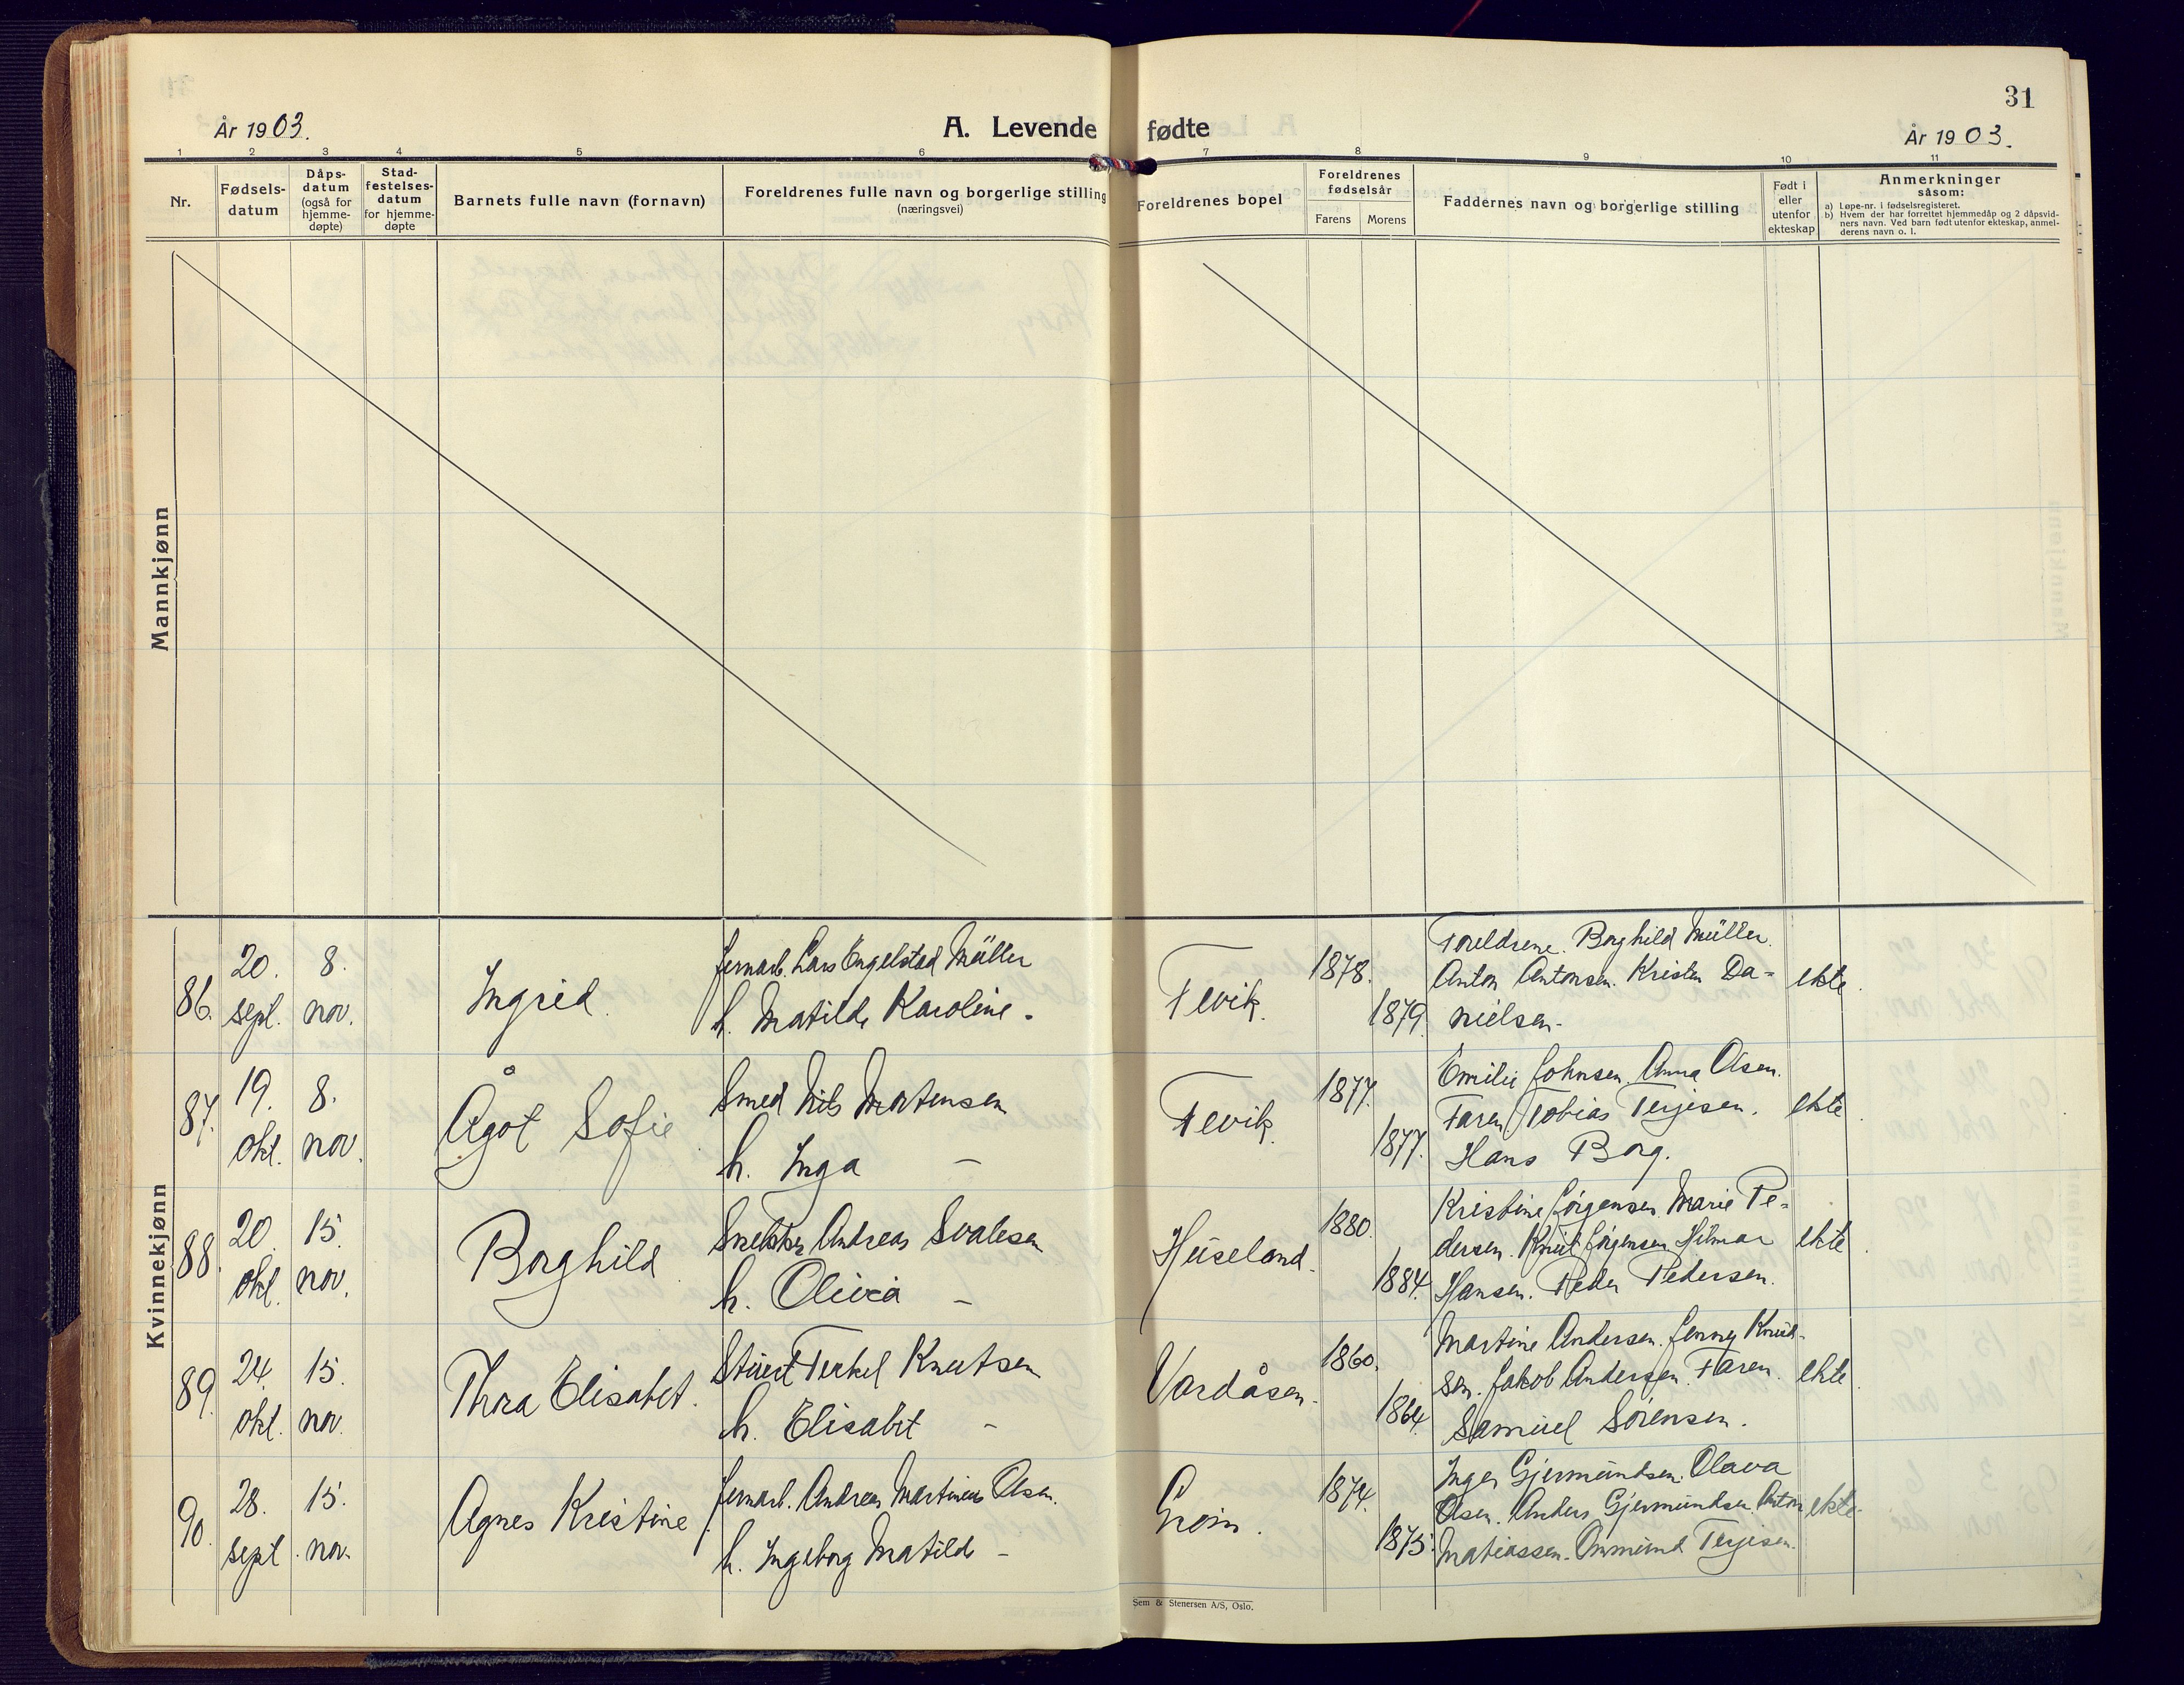 31
År 1903.
A. Levende fødte
År 1903.
1 2 3 4 5 6 7 8 9 10 11
Nr.
Fødsels-
datum
Dåps-
datum
(også for
hjemme-
døpte)
Stad-
festelses-
datum
for hjemme-
døpte
Barnets fulle navn (fornavn)
Foreldrenes fulle navn og borgerlige stilling
(næringsvei)
Foreldrenes bopel
Foreldrenes
fødselsår
Farens Morens
Faddernes navn og borgerlige stilling
Født i
eller
utenfor
ekteskap
Anmerkninger
såsom:
a) Løpe-nr. i fødselsregisteret.
b) Hvem der har forrettet hjemmedåp og 2 dåpsvid-
ners navn. Ved barn født utenfor ekteskap, anmel-
derens navn o. l.
Mannkjønn
Kvinnekjønn
86.
20.
sept.
8.
nov.
Ingrid.
Jernarb. Lars Engelstad Müller
h. Matilde Karoline.
Fevik.
1878.
1879
Foreldrene. Borghild Müller.
Anton Antonsen. Kristen Da-
nielsen.
ekte.
87.
19.
okt.
8.
nov.
Ågot Sofie
Smed Nils Mortensen
h. Inga –
Fevik.
1877.
1877.
Emilie Johnsen. Anna Olsen.
Faren Tobias Terjesen.
Hans Borg.
ekte.
88.
20.
okt.
15.
nov.
Borghild
Snekker Andreas Svalesen
h. Olivia –
Hüseland.
1880.
1884.
Kristine Jörgensen. Marie Pe-
dersen. Knut Jörgensen Hilmar
Hansen. Peder Pedersen.
ekte.
89.
24.
okt.
15.
nov.
Thora Elisabet.
Stuert Terkel Knutsen
h. Elisabet –
Vardåsen.
1860.
1864.
Martine Andersen. Jenny Knud-
sen. Jakob Andersen. Faren.
Samuel Sörensen.
ekte.
90.
28.
sept.
15.
nov.
Agnes Kristine
Jernarb. Andreas Martinius Olsen.
h. Ingeborg Matilde –
Grøm.
1874.
1875.
Inger Gjermundsen. Olava
Olsen. Anders Gjermundsen. Anton
Matiassen. Ommund Terjesen.
ekte.
Sem & Stenersen A/S, Oslo.